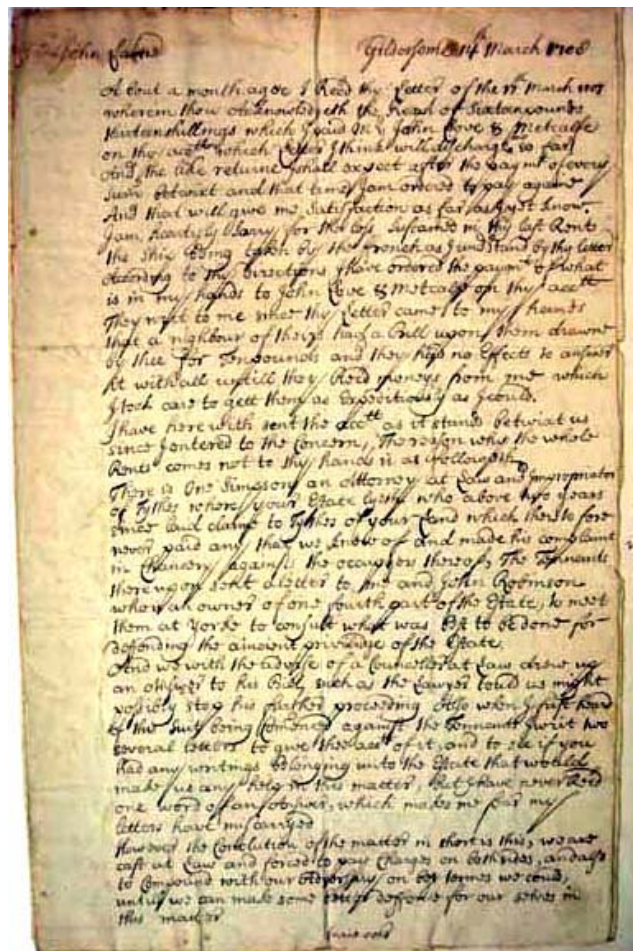 John
Gildersom 14th March 1708
About a month agoe I Recd thy Letter of the 17th March
wherein thou Acknowledgeth the of Sixteenpounds
thirteenshillings which I paid John Love & Metcalfe
on thy acctt which Letter I think will discharge so far
And the like returne I shall expect after the paymt of every
Sum betwixt and that time I am ordered to pay againe
And that will give me Satisfaction as far as I yet know.
I am heartyly Sorry for the loss Sustained in thy last Rents
the Ship being taken by the french as I undstand by thy letter
According to thy directions I have ordered the paymt of what
is in my hands to John Love & Metcalfe on thy acctt
They writ to me since thy Letter came to my hands
that a nighbour of theirs had a Bill upon them drawne
by thee for Tenpounds and they had no Effects to answer
it with all untill they Recd moneys from me which
I took care to gett them as Expeditiously as I could.
I have here with sent the acctt as it stands betwixt us
since I entered to the Concern, The reason why the whole
Rents comes not to thy hands is as followeth
There is One Simpson an Attorney at Law and Impropriator
of Tythes where your Estate lyeth who above two years
since laid claime to Tythes of your Land which theretofore
never paid any that we know of and made his complaint
in Chancery against the occupyers thereof, The Tennants
there upon sent a letter to me and John Robinson
who is an owner of one fourth part of the Estate, to meet
them at Yorke to consult what was best to be done for
deffending the ancient priviledge of the Estate.
And we with the advise of a Councellerat Law drew up
an Answer to his Bill, such as the Lawyer tould us might
possibly stop his further proceeding Also when I first heard
of this suit being Comenced against the Tennants I writ two
several letters to give thee acctt of it, and to see if you
had any writings belonging unto the Estate that would
make us any help in this matter, But I have never Recd
one word of an answer, which makes me fear my
letters have miscarryed
However the Conclution of the matter in short is this, we are
cast at Law and forced to pay Charges on both sides, and
to Compound with our Adversary on best termes we could,
untill we can make some better deffence for our selves in
this matter